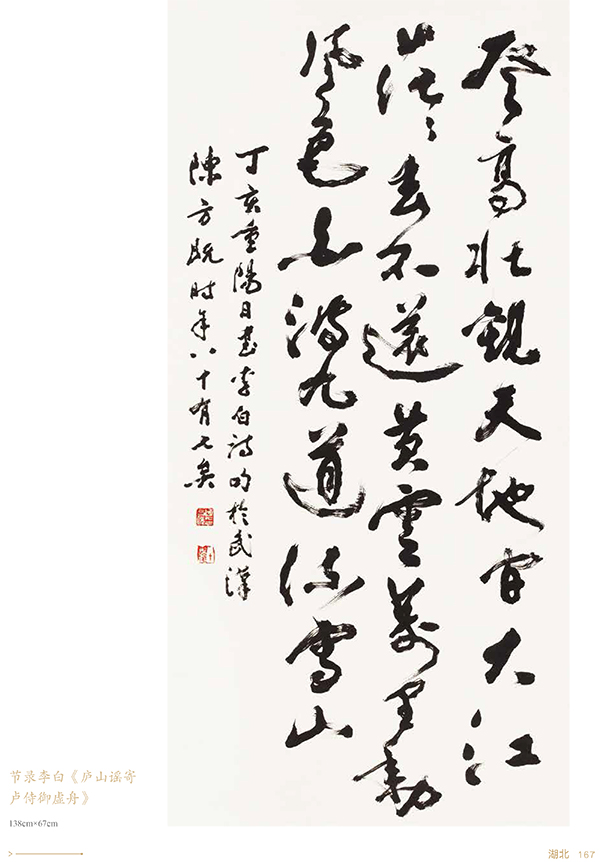 登高壯觀天地間大江
茫茫去不還黃雲萬里動
風色白波九道流雪山
丁亥重陽日書李白詩句於武漢
陳方既時年八十有七矣
节录李白《庐山谣寄
卢侍御虚舟》
138cm×67cm
湖北 167